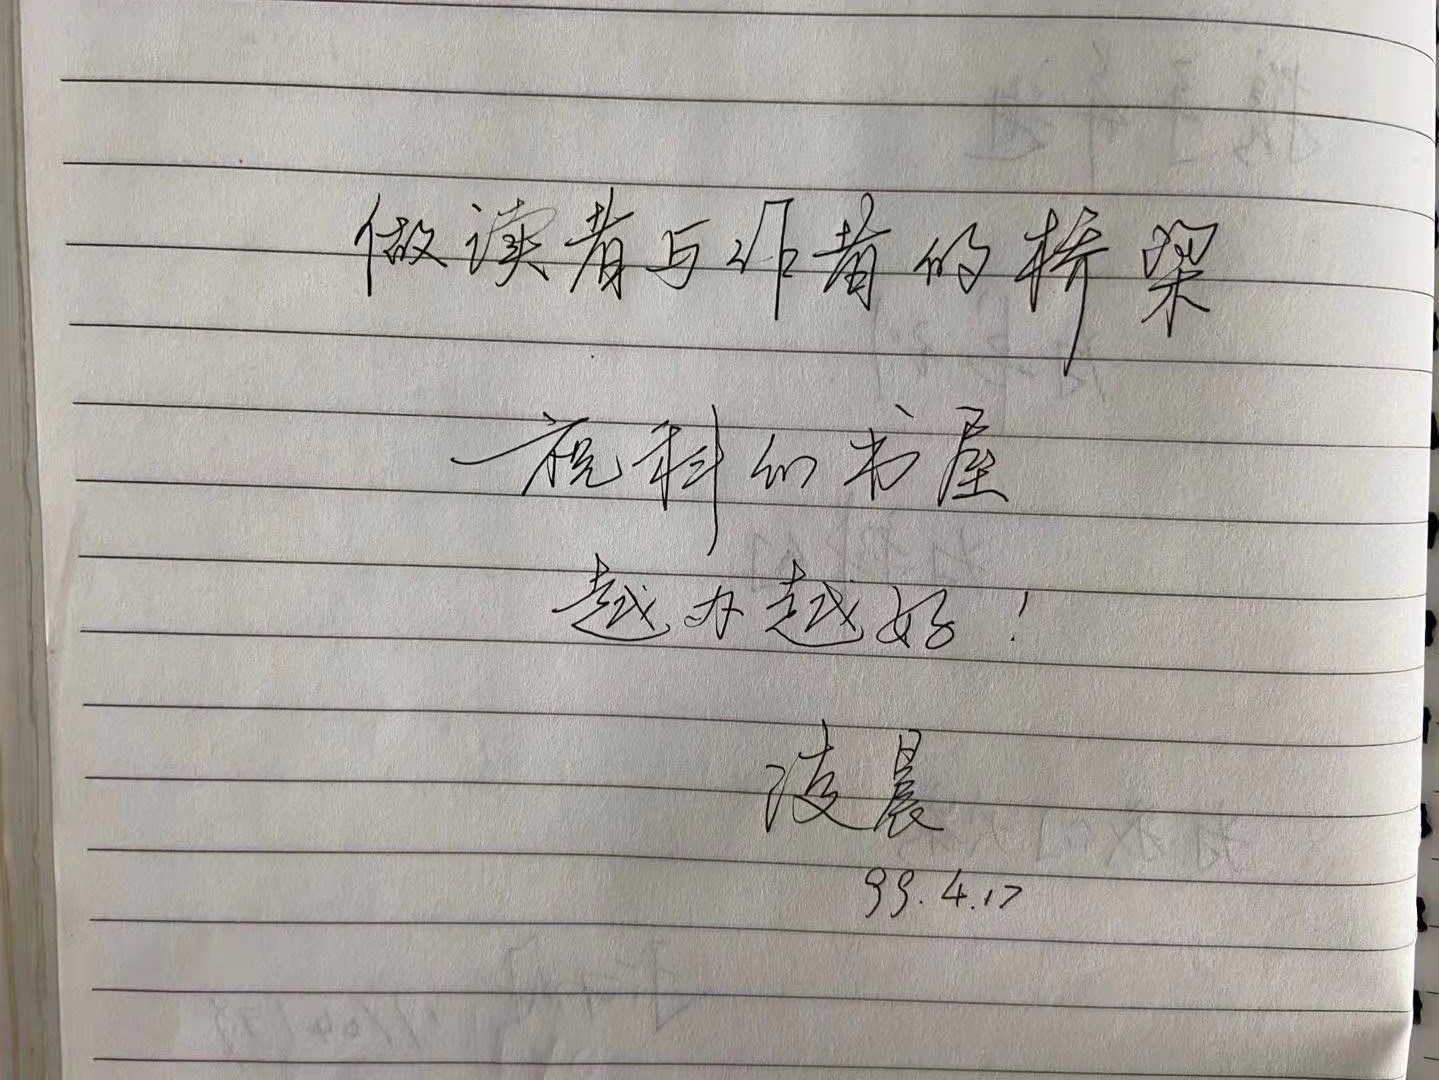 做读者与作者的桥梁
—祝科幻书屋
越办越好！
凌晨
99.4.17